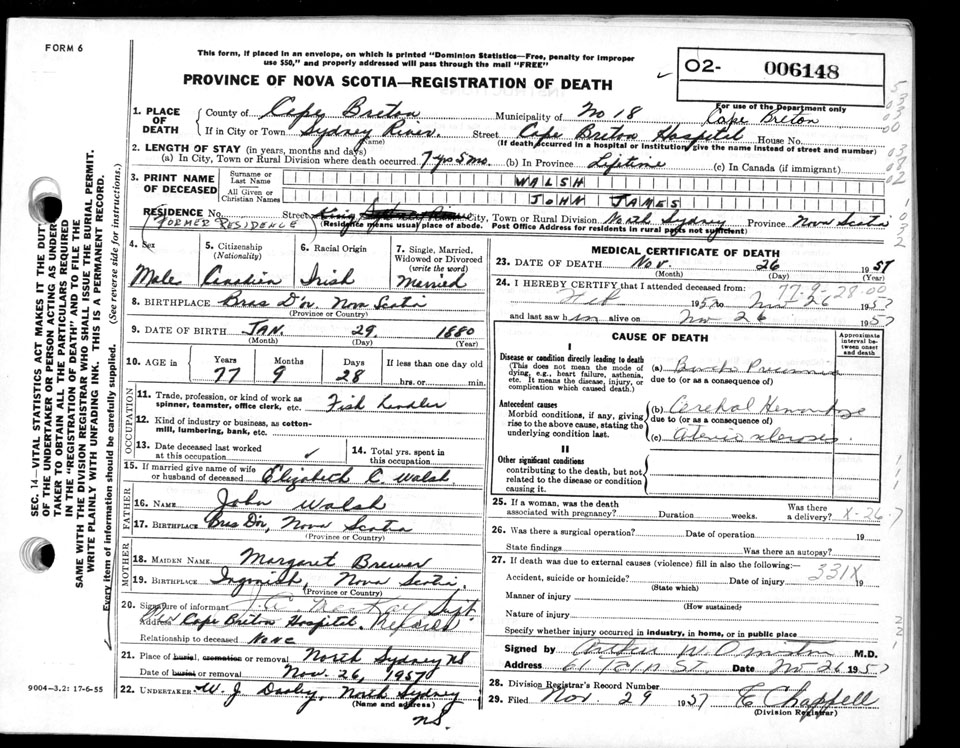 FORM 6
This form, if placed in an envelope, on which is printed "Dominion Statistics—Free, penalty for improper
use $50," and properly addressed will pass through the mail "FREE"
PROVINCE OF NOVA SCOTIA—REGISTRATION OF DEATH
02- 006148
For use of the Department only
SEC. 14—VITAL STATISTICS ACT MAKES IT THE DUTY
OF THE UNDERTAKER OR PERSON ACTING AS UNDER-
TAKER TO OBTAIN ALL THE PARTICULARS REQUIRED
IN THE "REGISTRATION OF DEATH" AND TO FILE THE
SAME WITH THE DIVISION REGISTRAR WHO SHALL ISSUE THE BURIAL PERMIT.
WRITE PLAINLY WITH UNFADING INK. THIS IS A PERMANENT RECORD.
Every item of information should be carefully supplied. (See reverse side for instructions.)
1. PLACE OF DEATH
County of Cape Breton Municipality of No 18 Cape Breton
If in City or Town Sydney River Street Cape Breton Hospital House No.
(Name) (If death occurred in a hospital or institution, give the name instead of street and number)
2. LENGTH OF STAY (in years, months and days)
(a) In City, Town or Rural Division where death occurred 7 yrs 5 mo. (b) In Province Lifetime (c) In Canada (if immigrant)
3. PRINT NAME OF DECEASED
Surname or Last Name WALSH
All Given or Christian Names JOHN JAMES
RESIDENCE No. Street King City, Town or Rural Division North Sydney Province Nova Scotia
(FORMER RESIDENCE) (Residence means usual place of abode. Post Office Address for residents in rural parts not sufficient)
4. Sex
Male
5. Citizenship (Nationality)
Canadian
6. Racial Origin
Irish
7. Single, Married, Widowed or Divorced (write the word)
Married
8. BIRTHPLACE Bras D'or, Nova Scotia
(Province or Country)
9. DATE OF BIRTH JAN. 29, 1880
(Month) (Day) (Year)
10. AGE in Years Months Days If less than one day old
77 9 28 hrs. or min.
OCCUPATION
11. Trade, profession, or kind of work as spinner, teamster, office clerk, etc. Fish handler
12. Kind of industry or business, as cotton-mill, lumbering, bank, etc.
13. Date deceased last worked at this occupation
14. Total yrs. spent in this occupation
15. If married give name of wife or husband of deceased Elizabeth C. Walsh
FATHER
16. NAME John Walsh
17. BIRTHPLACE Bras D'or, Nova Scotia
(Province or Country)
MOTHER
18. MAIDEN NAME Margaret Brewer
19. BIRTHPLACE Ingonish, Nova Scotia.
(Province or Country)
20. Signature of informant MacKay Supt.
Address Cape Breton Hospital.
Relationship to deceased None
21. Place of burial, cremation or removal North Sydney NS
Date of burial or removal Nov. 26, 1957
22. UNDERTAKER W. J. Dooley, North Sydney
(Name and address) N.S.
9004—3.2: 17-6-55
MEDICAL CERTIFICATE OF DEATH
23. DATE OF DEATH Nov. 26 1957
(Month) (Day) (Year)
77-9-28-00
24. I HEREBY CERTIFY that I attended deceased from:
Feb 1957 to Nov 26 1957
and last saw him alive on Nov 26 1957
CAUSE OF DEATH
Approximate interval between onset and death
I
Disease or condition directly leading to death
(This does not mean the mode of dying, e.g., heart failure, asthenia, etc. It means the disease, injury, or complication which caused death.)
(a) Bronch Pneumonia
due to (or as a consequence of)
Antecedent causes
Morbid conditions, if any, giving rise to the above cause, stating the underlying condition last.
(b) Cerebral Hemorrhage
due to (or as a consequence of)
(c) Arteriosclerosis
II
Other significant conditions
contributing to the death, but not related to the disease or condition causing it.
25. If a woman, was the death associated with pregnancy? Duration weeks. Was there a delivery?
X-26-7
26. Was there a surgical operation? Date of operation 19
State findings Was there an autopsy?
27. If death was due to external causes (violence) fill in also the following:—
331X
Accident, suicide or homicide? Date of injury 19
(State which)
Manner of injury
(How sustained)
Nature of injury
Specify whether injury occurred in industry, in home, or in public place
Signed by Arthur W Ormiston M.D.
Address St. Date Nov 26 1957
28. Division Registrar's Record Number
29. Filed Nov. 29 1957 E Chappell
(Division Registrar)